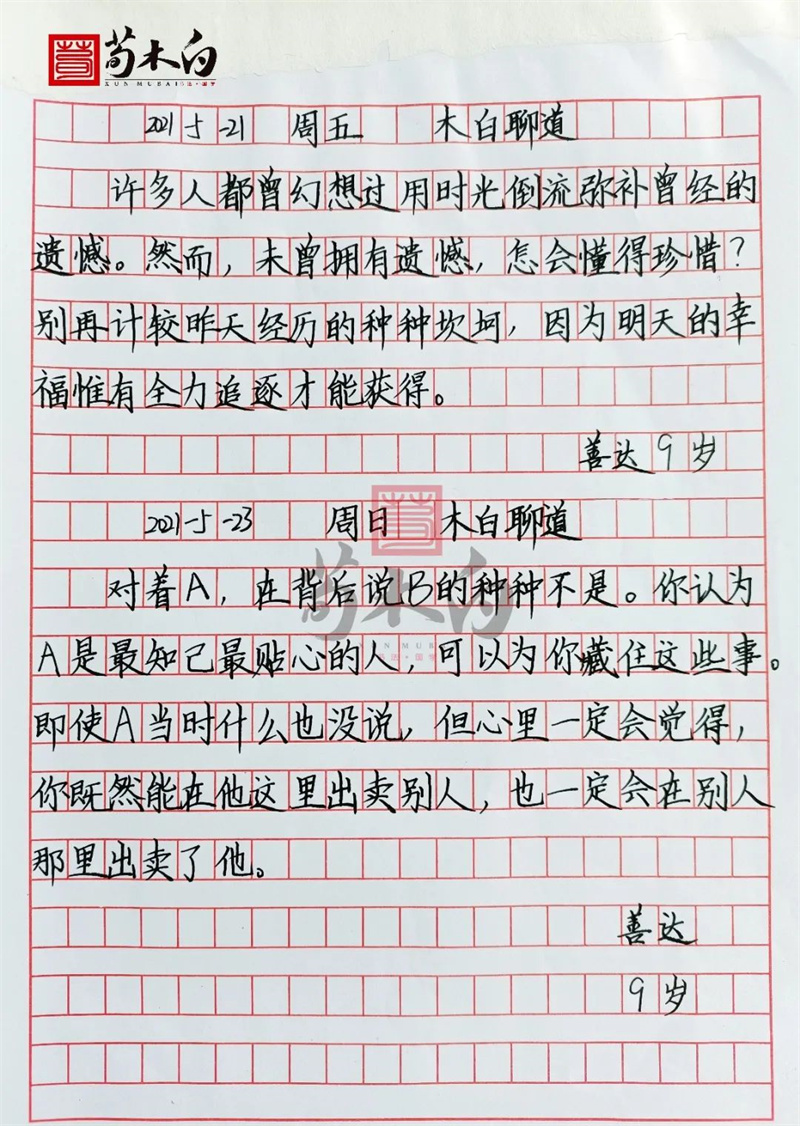 荀木白
XUN MUBAI
2021-5-21 周五 木白聊道
许多人都曾幻想过用时光倒流弥补曾经的
遗憾。然而，未曾拥有遗憾，怎会懂得珍惜？
别再计较昨天经历的种种坎坷，因为明天的幸
福惟有全力追逐才能获得。
善达9岁
2021-5-23 周日 木白聊道
对着A，在背后说B的种种不是。你认为
A是最知己最贴心的人，可以为你藏住这些事。
即使A当时什么也没说，但心里一定会觉得，
你既然能在他这里出卖别人，也一定会在别人
那里出卖了他。
善达
9岁